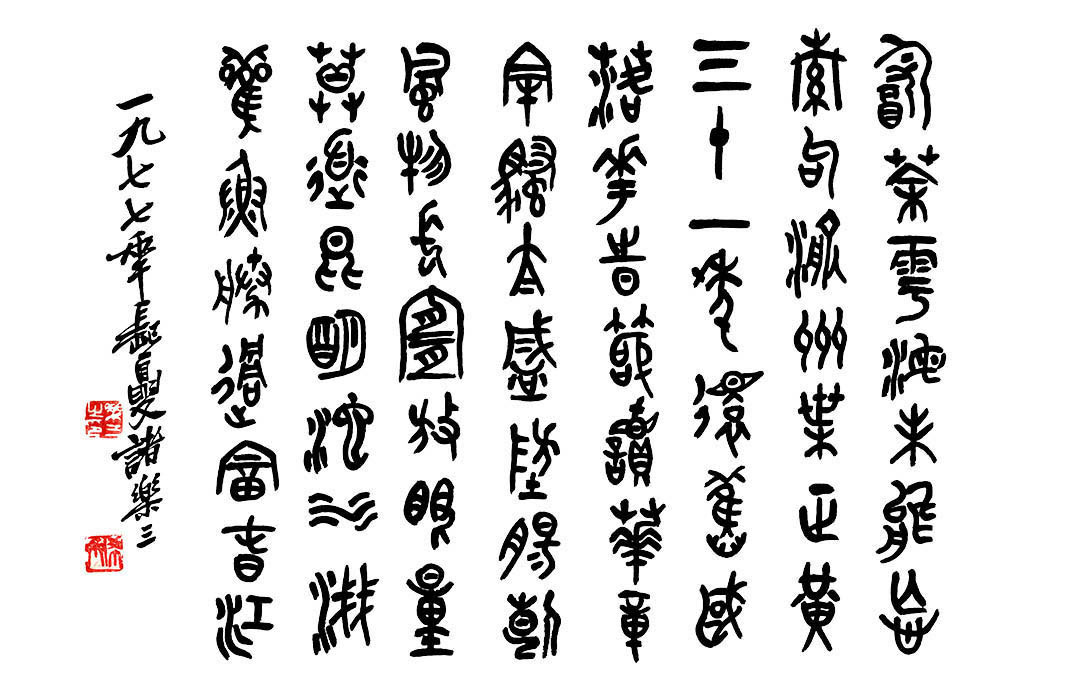 飲茶粵海未能忘
索句渝州葉正黃
三十一年還舊國
落花時節讀華章
牢騷太盛防腸斷
風物長宜放眼量
莫道昆明池水淺
觀魚勝過富春江
一九七七年 叟諸樂三